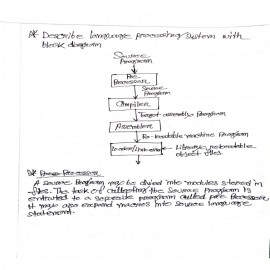 Describe language processing system with
block diagram
Source
Program
Pre
Processor
Source
Program
Compiler
Target assembly Program
Assembler
Re-loadable machine Program
Loader/link-editor
Library, relocatable
object files.
Pre Processor
A source Program may be divided into modules stored in
files. The task of collecting the source Program is
entrusted to a separate program called pre processor.
It may also expand macros into source language
statement.